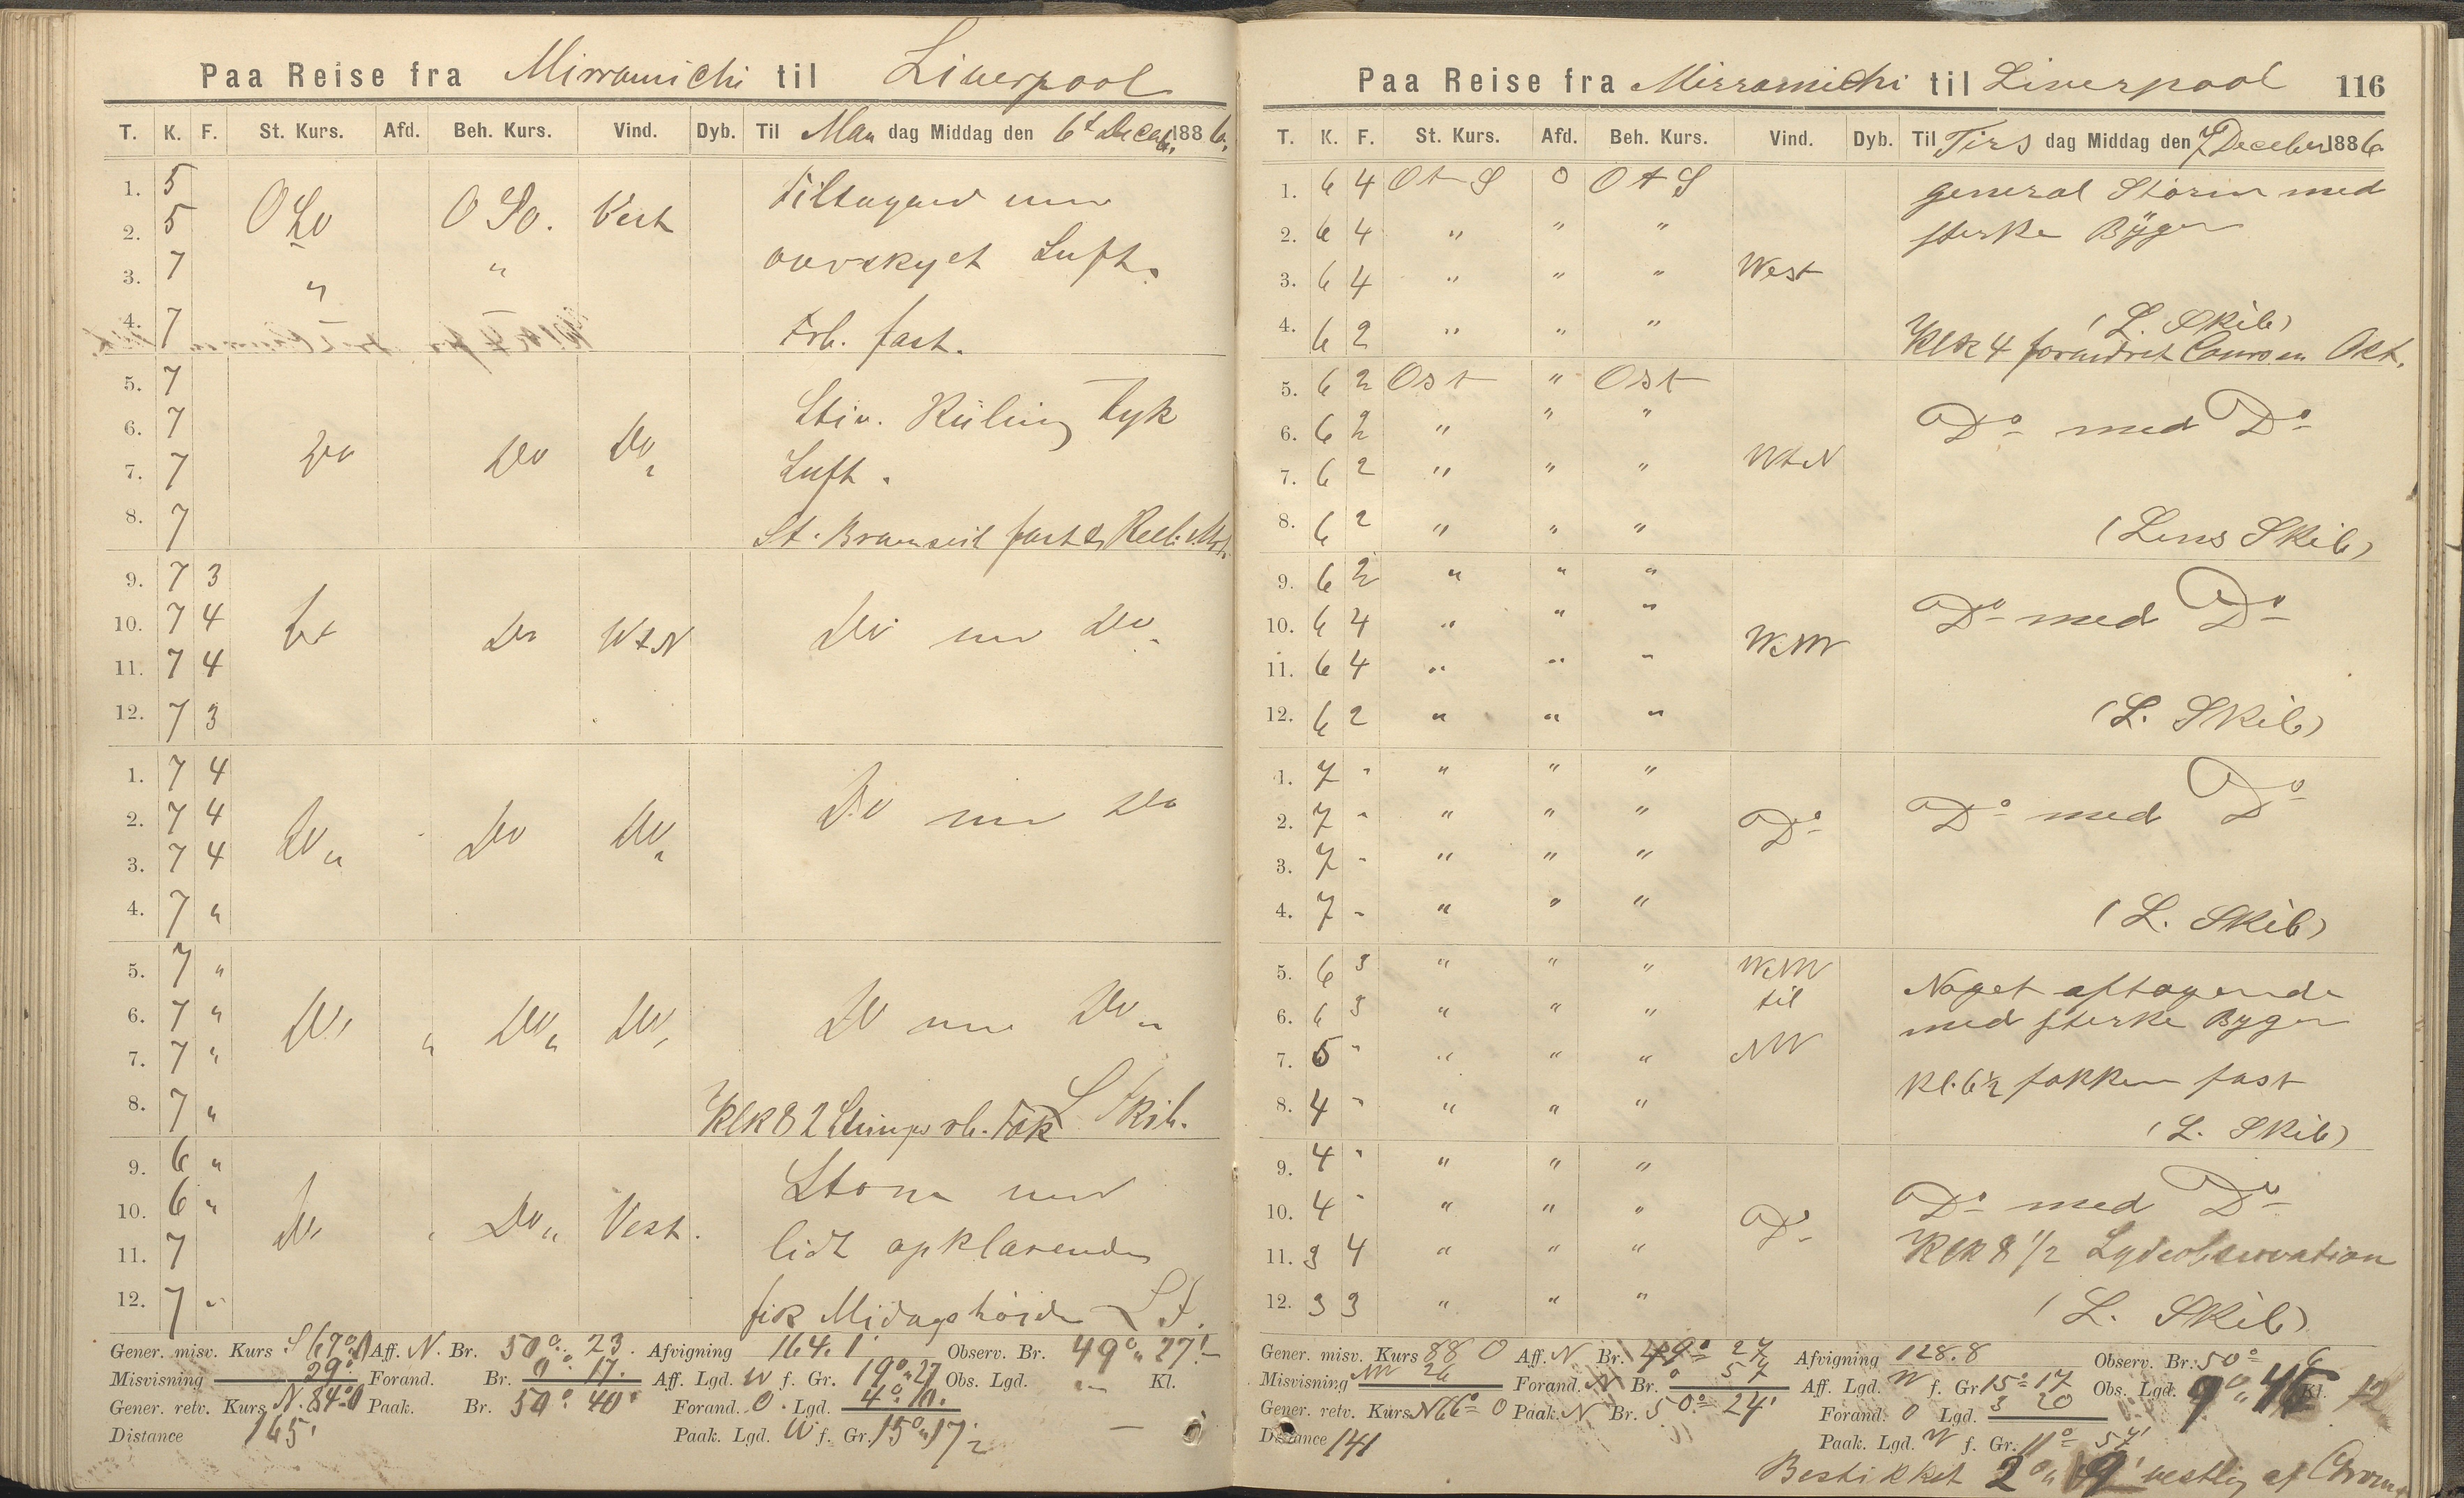 Paa Reise fra Mirramichi til Liverpool
T. K. F. St. Kurs. Afd. Beh. Kurs. Vind. Dyb. Til Man dag Middag den 6t Decemb. 1886.
1. 5
2. 5 OSO OSO. Vest
3. 7 " "
4. 7
Tiltagend
overskyet Luft.
fast.
5. 7
6. 7
7. 7 Do Do Do
8. 7
Stiv Küling tyk
Luft.
St. Bramseil fast
9. 7 3
10. 7 4 Do Do WtN
11. 7 4
12. 7 3
Do med Do
1. 7 4
2. 7 4 Do Do Do
3. 7 4
4. 7 "
Do med Do
5. 7 "
6. 7 " Do " Do Do
7. 7 "
8. 7 "
Do med Do
Klk 8 2 L Skib.
9. 6 "
10. 6 " Do " Do Vest.
11. 7
12. 7 "
Storm med
lidt opklarende
fik Midagshöide L S.
Gener. misv. Kurs S 67° O Aff. N. Br. 50° 23. Afvigning 164.1 Observ. Br. 49° 27'
Misvisning 29° Forand. Br. 0° 17. Aff. Lgd. W f. Gr. 19° 27 Obs. Lgd. Kl.
Gener. retv. Kurs N. 84° O Paak. Br. 50° 40' Forand. O. Lgd. 4° 10.
Distance 165' Paak. Lgd. W f. Gr. 15° 17'
Paa Reise fra Mirramichi til Liverpool 116
T. K. F. St. Kurs. Afd. Beh. Kurs. Vind. Dyb. Til Tirs dag Middag den 7 December 1886
1. 6 4 Ot S 0 Ot S
2. 6 4 " " "
3. 6 4 " " " West
4. 6 2 " " "
general Storm med
sterke Byger
(L. Skib)
Klk 4 forandret Coursen Ost.
5. 6 2 Ost " Ost
6. 6 2 " " "
7. 6 2 " " " WtN
8. 6 2 " " "
Do med Do
(Lens Skib)
9. 6 2 " " "
10. 6 4 " " "
11. 6 4 " " " WNW
12. 6 2 " " "
Do med Do
(L. Skib)
1. 7 - " " "
2. 7 - " " " Do
3. 7 - " " "
4. 7 - " " "
Do med Do
(L. Skib)
5. 6 3 " " " WNW
6. 6 3 " " " til
7. 5 " " " " NW
8. 4 " " " "
Noget aftagende
med sterke Byger
Kl. 6½ fokken fast
(L. Skib)
9. 4 " " " "
10. 4 " " " " Do
11. 3 4 " " "
12. 3 3 " " "
Do med Do
Klk 8 1/2 Lgdeobservation
(L. Skib)
Gener. misv. Kurs 88 O Aff. N Br. 49° 27 Afvigning 128.8 Observ. Br. 50° 6
Misvisning NW 26 Forand. N Br. 0 57 Aff. Lgd. W f. Gr. 15° 17 Obs. Lgd. Kl. 12
Gener. retv. Kurs N66° O Paak. N Br. 50° 24' Forand. O Lgd. 3 20
Distance 141 Paak. Lgd. W f. Gr. 11° 57'
Bestikket 2° 9' vestlig af Chronm